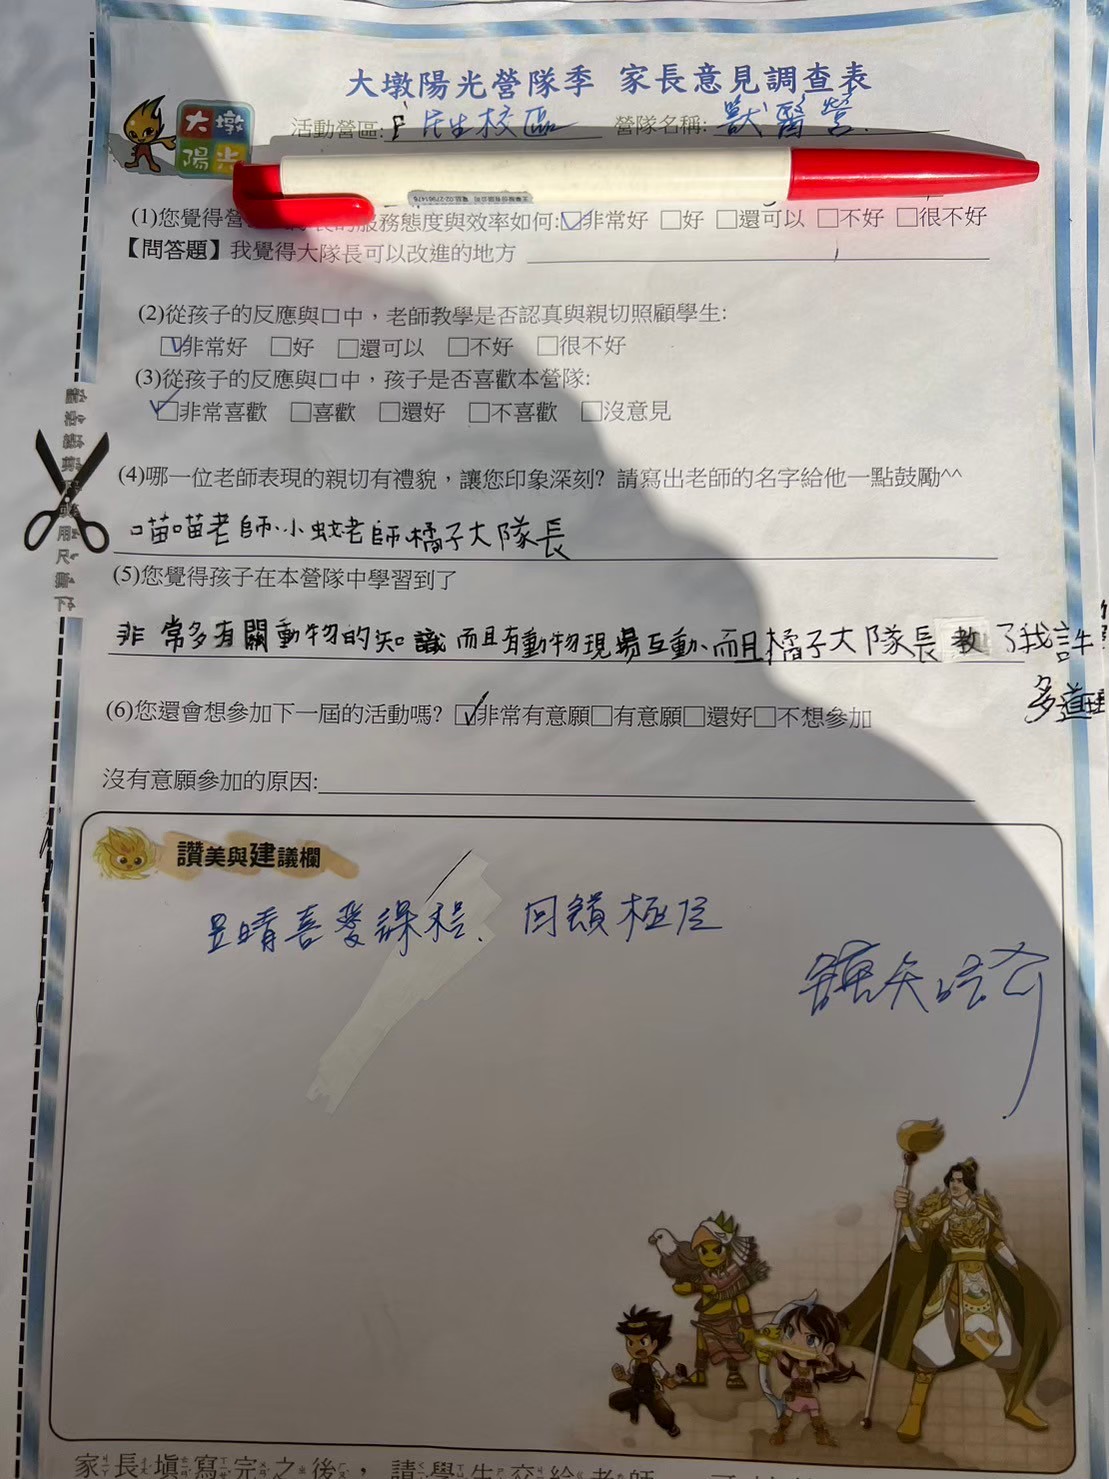 大墩陽光營隊季 家長意見調查表
大墩
陽光
活動營區: 民生校區 營隊名稱: 獸醫營
(1)您覺得營 的服務態度與效率如何:☑非常好 □好 □還可以 □不好 □很不好
【問答題】我覺得大隊長可以改進的地方
(2)從孩子的反應與口中，老師教學是否認真與親切照顧學生:
☑非常好 □好 □還可以 □不好 □很不好
(3)從孩子的反應與口中，孩子是否喜歡本營隊:
☑非常喜歡 □喜歡 □還好 □不喜歡 □沒意見
(4)哪一位老師表現的親切有禮貌，讓您印象深刻? 請寫出老師的名字給他一點鼓勵^^
喵喵老師、小蚊老師、橘子大隊長
(5)您覺得孩子在本營隊中學習到了
非常多有關動物的知識而且有動物現場互動、而且橘子大隊長教了我許
多道理
(6)您還會想參加下一屆的活動嗎? ☑非常有意願□有意願□還好□不想參加
沒有意願參加的原因:
讚美與建議欄
昱晴喜愛課程、回饋極佳
家長填寫完之後，請學生交給老師